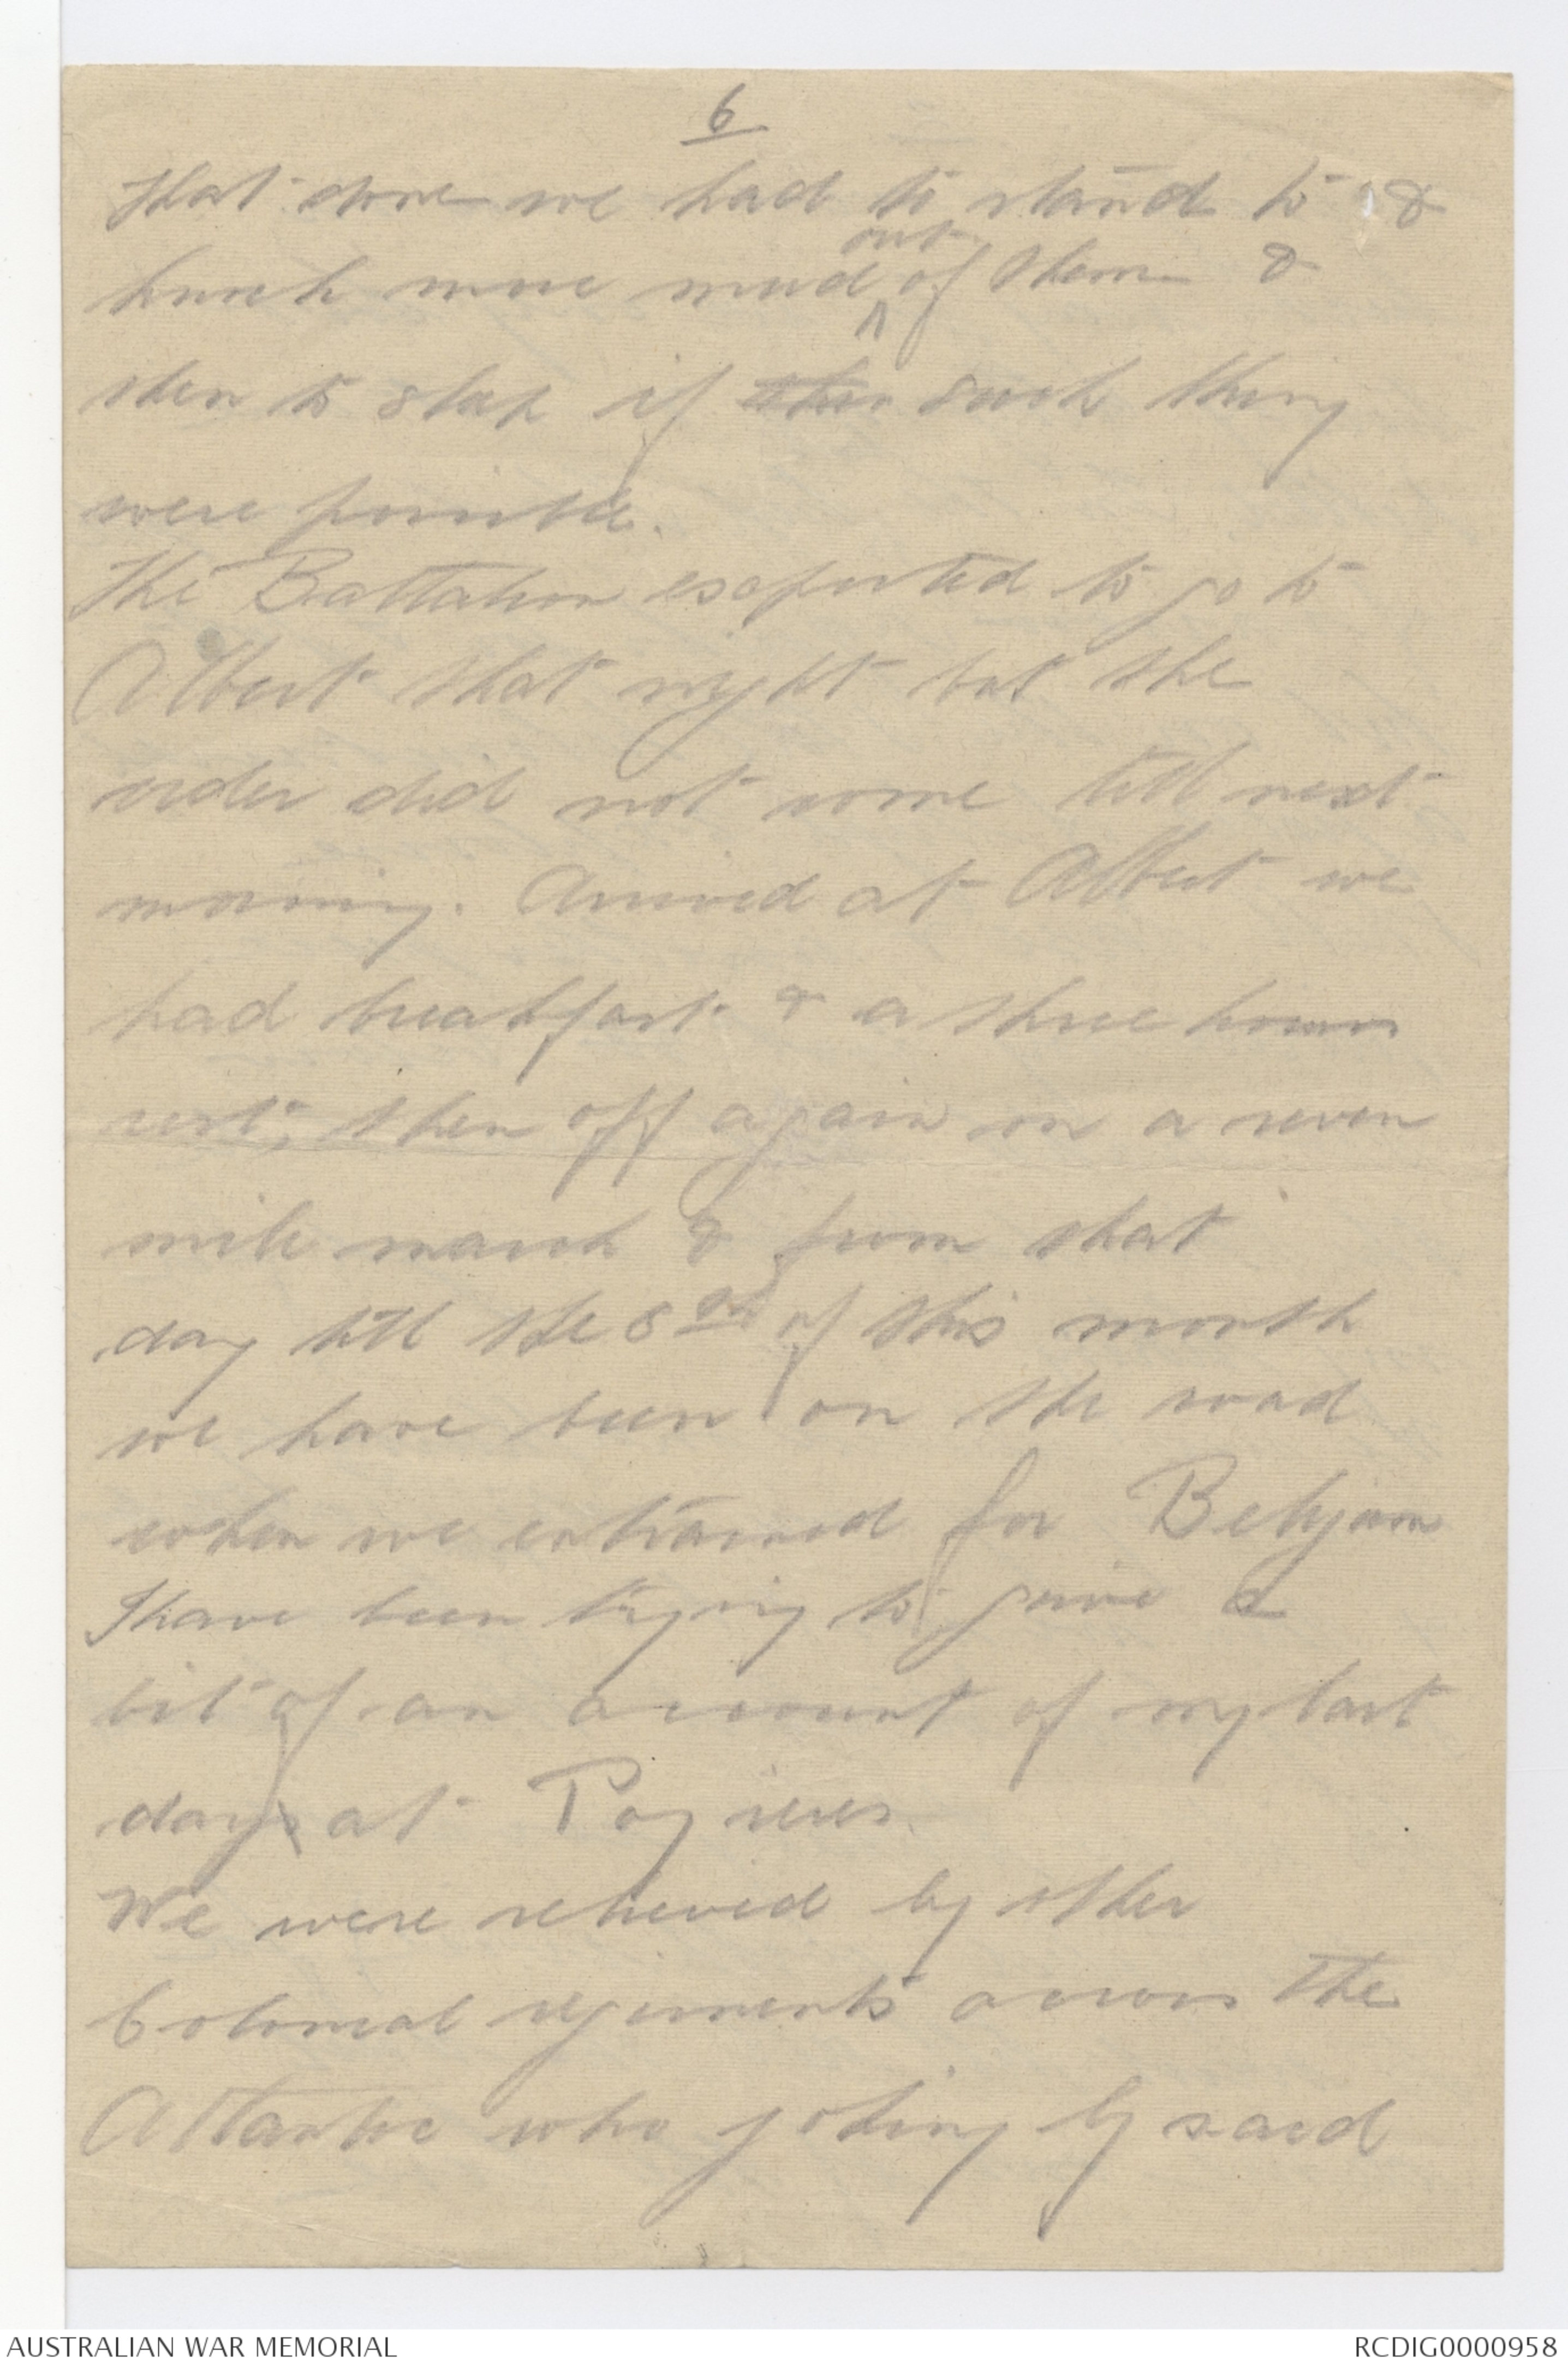 6
that done we had to stand to &
punch more mud out of them &
then to slap if such thing
were possible.
The Battalion expected to go to
Albert that night but the
order did not come till next
morning. Arrived at Albert we
had breakfast & a three hours
rest, then off again on a seven
mile march & from that
day till the 8th of this month
we have been on the road
when we entrained for Belgium
I have been trying to give a
bit of an account of my last
day at Pozieres
We were relieved by other
Colonial regiments across the
Atlantic who joking ly said
AUSTRALIAN WAR MEMORIAL
RCDIG0000958